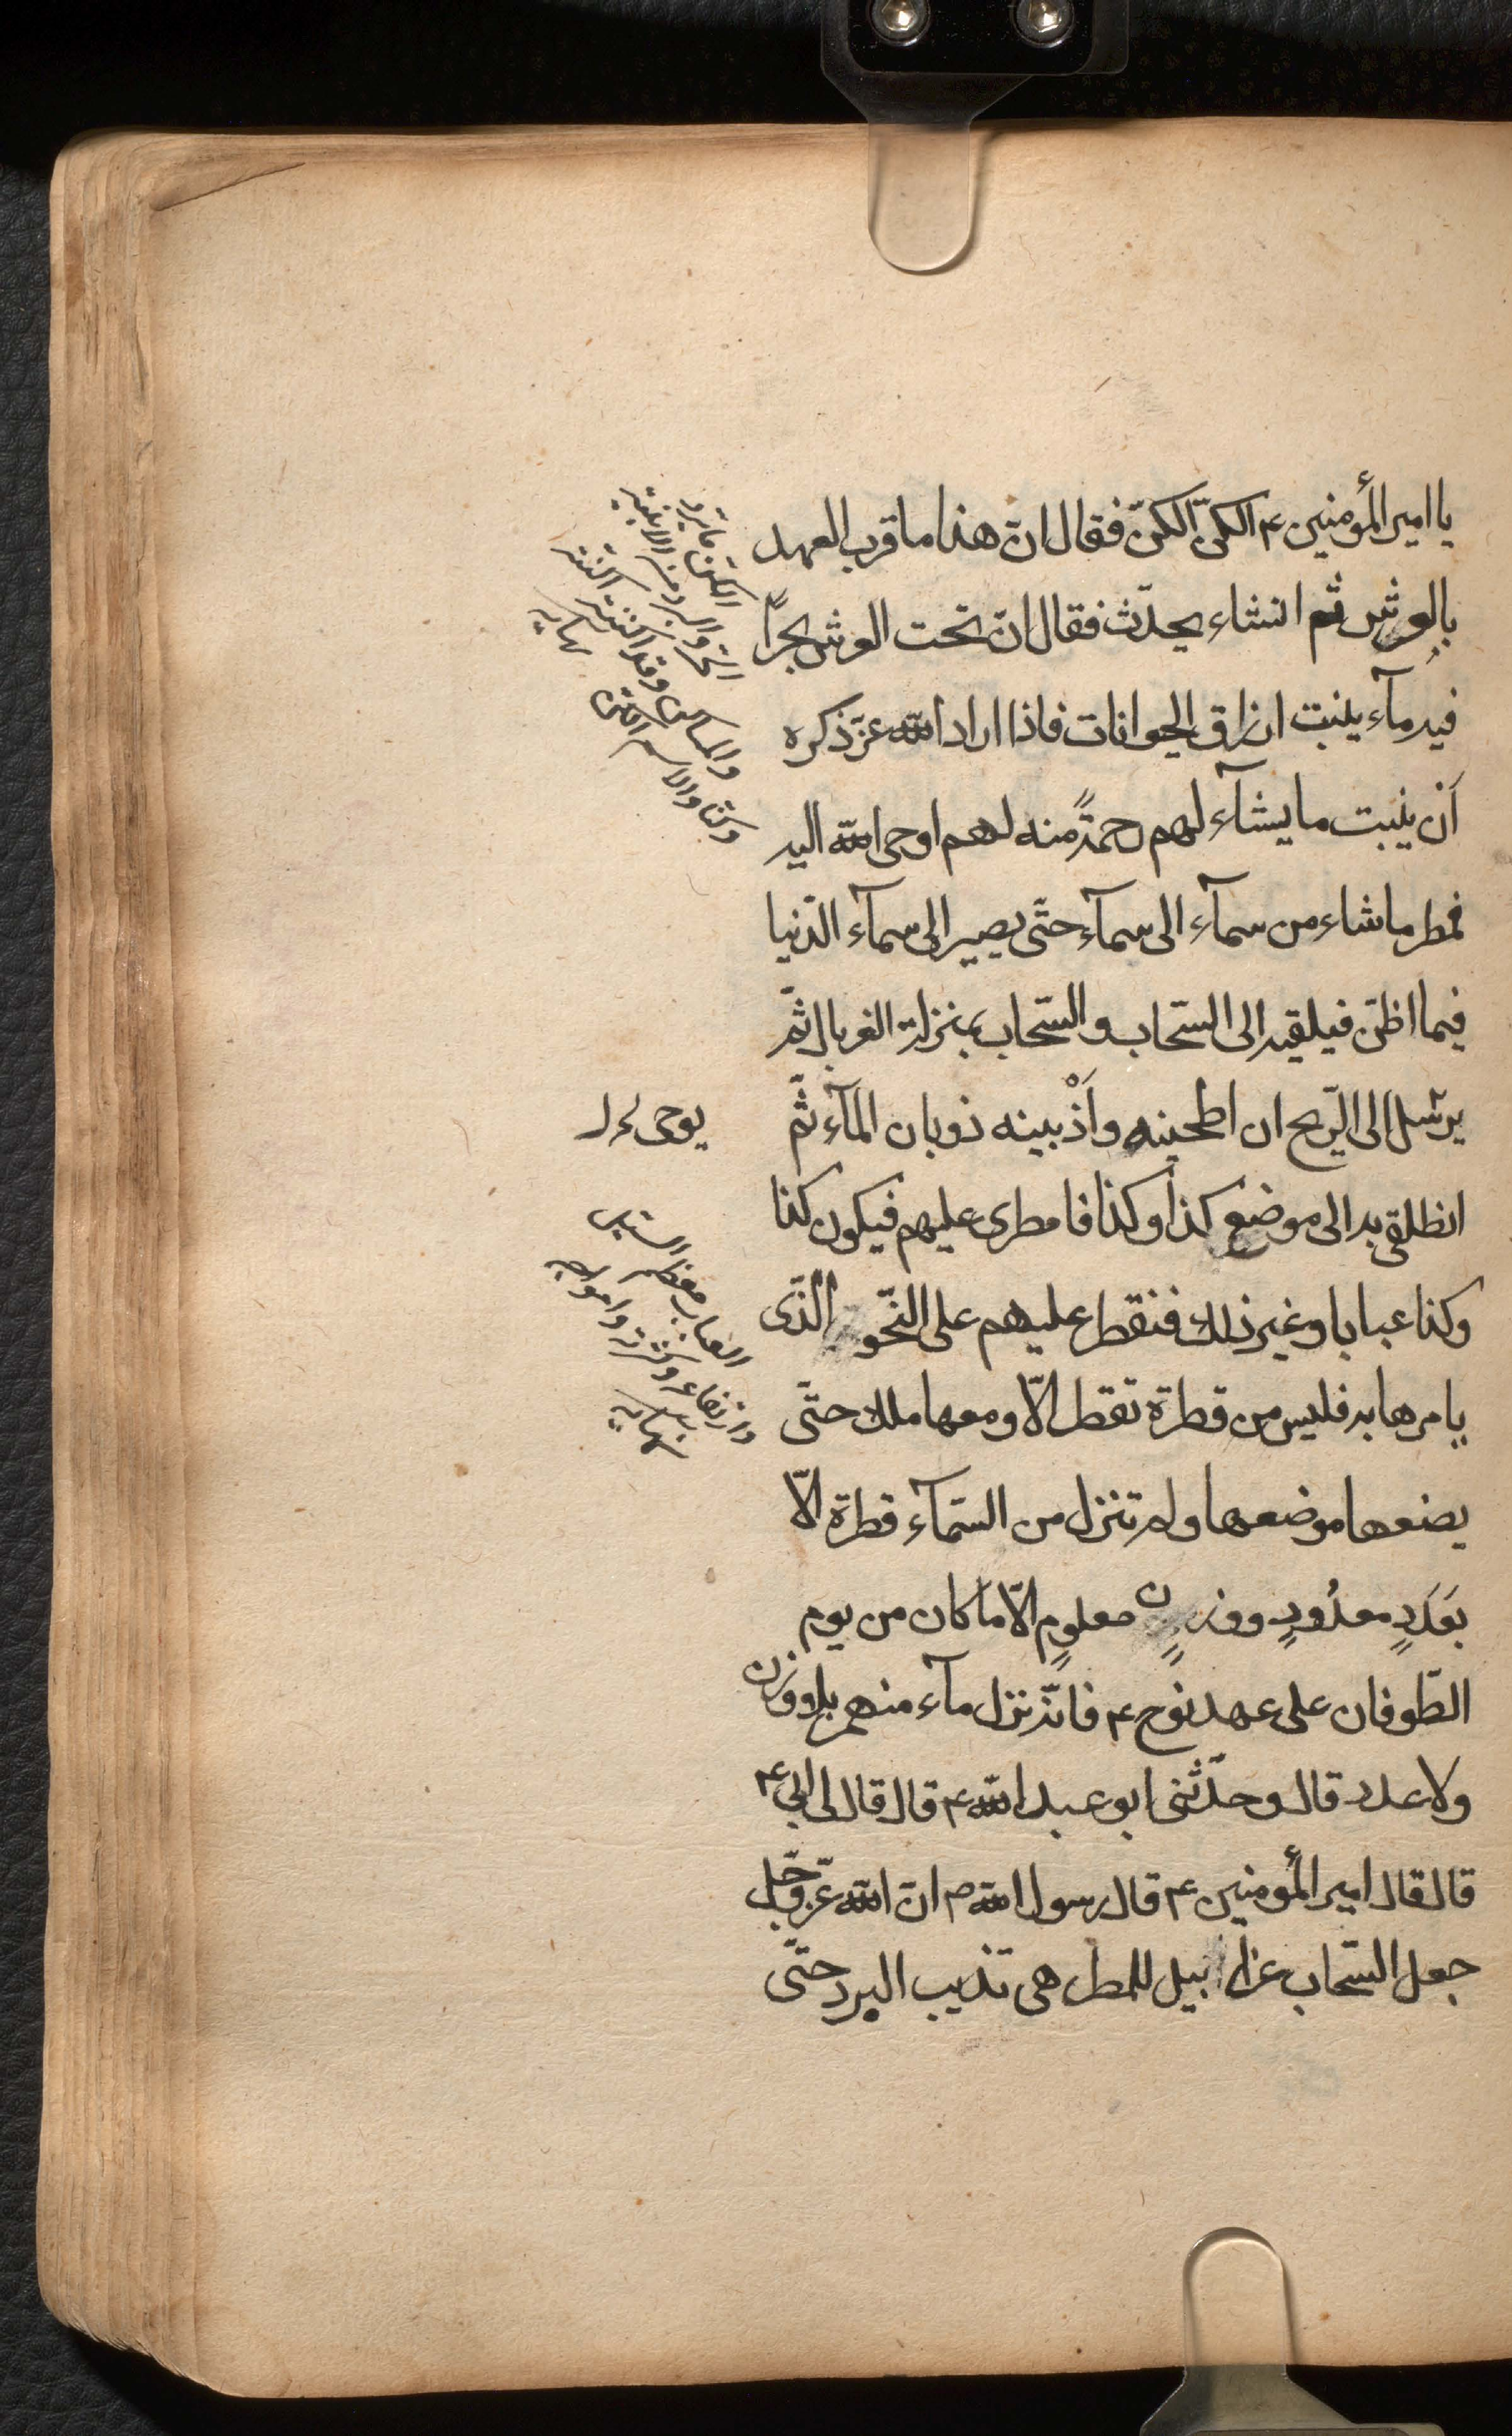 يا امير المؤمنين ع الكنّ الكنّ فقال انّ هذا ما قرب العهد
بالعرش ثم انشاء يحدّث فقال انّ تحت العرش بحراً
فيه مآء ينبت ارزاق الحيوانات فاذا اراد الله عزّ ذكره
أن ينبت ما يشآء لهم رحمةً منه لهم اوحى الله اليه
فمطر ما شاء من سمآء الى سمآء حتّى يصير الى سمآء الدّنيا
فيما اظنّ فيلقيه الى السّحاب والسّحاب بمنزلة الغربال ثمّ
يرسل الى الرّيح ان اطحنيه وأذْيبنه ذوبان المآء ثمّ
يوحى
انطلقى به الى موضع كذا وكذا فامطرى عليهم فيكون كذا
وكذا عبابا وغير ذلك فتقطر عليهم على النّحو الذّى
يامرها به فليس من قطرة تقطر الّا ومعها ملك حتّى
يضعها موضعها ولم تنزل من السّمآء قطرة الّا
بعَدَدٍ معدُودٍ ووزنٍ معلومٍ الّا ما كان من يوم
الطّوفان على عهد نوح ع فانّه نزل مآء منهمر بلا وزن
ولا عدد قال وحدّثنى ابو عبد الله ع قال قال لى ابى ع
قال قال امير المؤمنين ع قال رسول الله ص انّ الله عزّ وجّل
جعل السّحاب غرابيل للمطر هى تذيب البرد حتّى
الكنّ ما يردّ
الحرّ والبرد من الابنية
والمساكن وقد كننته اكنّه
كنّا والاسم الكنّ
نهايه
العباب معظم السيل
وارتفاعه وكثرته وامواجه
نهايه